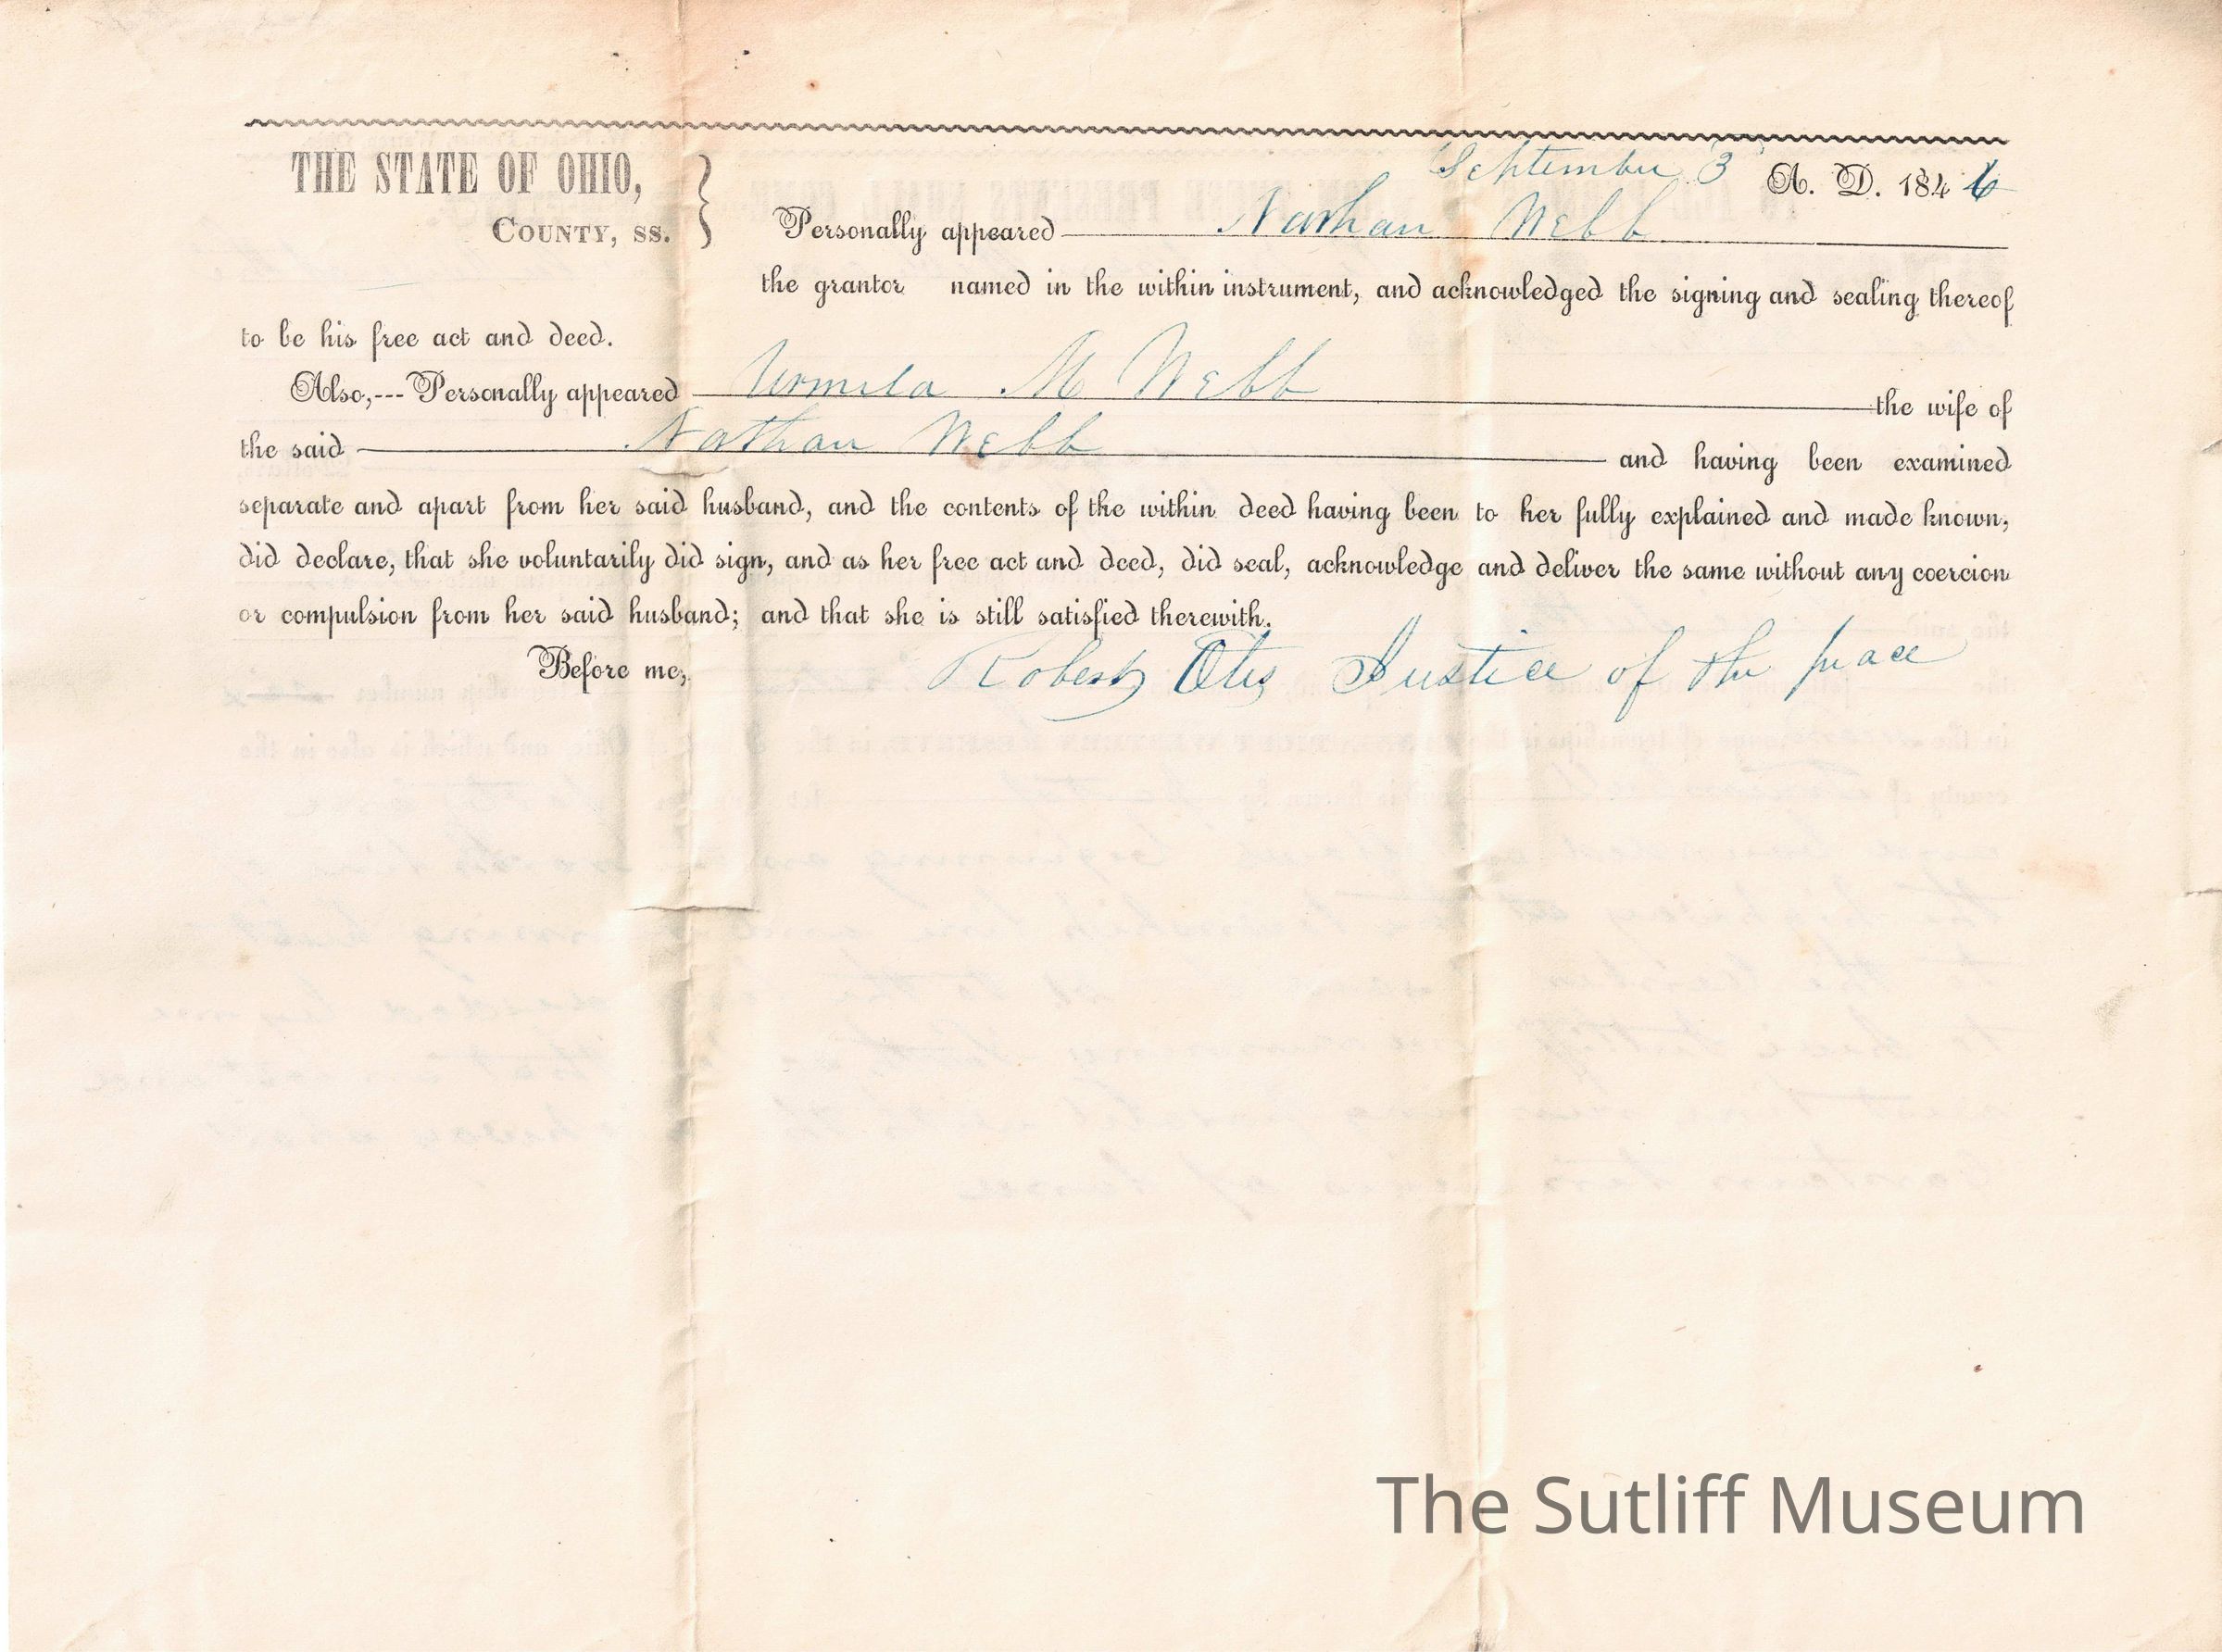 September 3 A. D. 1846
THE STATE OF OHIO,
COUNTY, SS.
Personally appeared Nathan Webb
the grantor named in the within instrument, and acknowledged the signing and sealing thereof
to be his free act and deed.
Also,--- Personally appeared M Webb the wife of
the said Nathan Webb and having been examined
separate and apart from her said husband, and the contents of the within deed having been to her fully explained and made known,
did declare, that she voluntarily did sign, and as her free act and deed, did seal, acknowledge and deliver the same without any coercion
or compulsion from her said husband; and that she is still satisfied therewith.
Before me, Robert Otis Justice of the peace
The Sutliff Museum